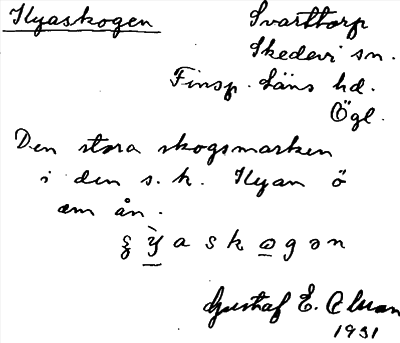 Ilyaskogen
Svarttorp
Skedevi sn.
Finsp. Läns hd.
Ögl.
Den stora skogsmarken
i den s.k. Ilyan ö
om ån.
ỳ a s k o g ə n
Gustaf E.
1931